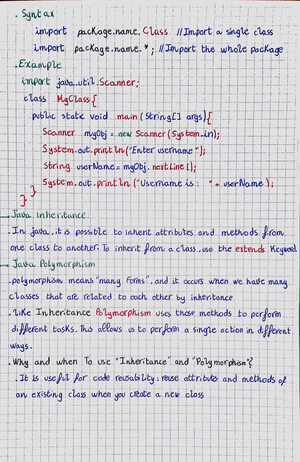 . Syntax
import package.name.Class //Import a single class
import package.name.*; //Import the whole package
.Example
import java.util.Scanner;
class MyClass{
public static void main(String[] args){
Scanner myObj = new Scanner(System.in);
System.out.println("Enter username");
String userName = myObj.nextLine();
System.out.println("Username is : " + userName);
}
}
→ Java Inheritance
.In java, it is possible to inherit attributes and methods from
one class to another. To inherit from a class, use the extends Keyword
→ Java Polymorphism
.polymorphism means "many forms", and it occurs when we have many
classes that are related to each other by inheritance
.Like Inheritance Polymorphism uses those methods to perform
different tasks. This allows us to perform a single action in different
ways.
.Why and when To use "Inheritance" and "Polymorphism"?
.It is useful for code reusability: reuse attributes and methods of
an existing class when you create a new class